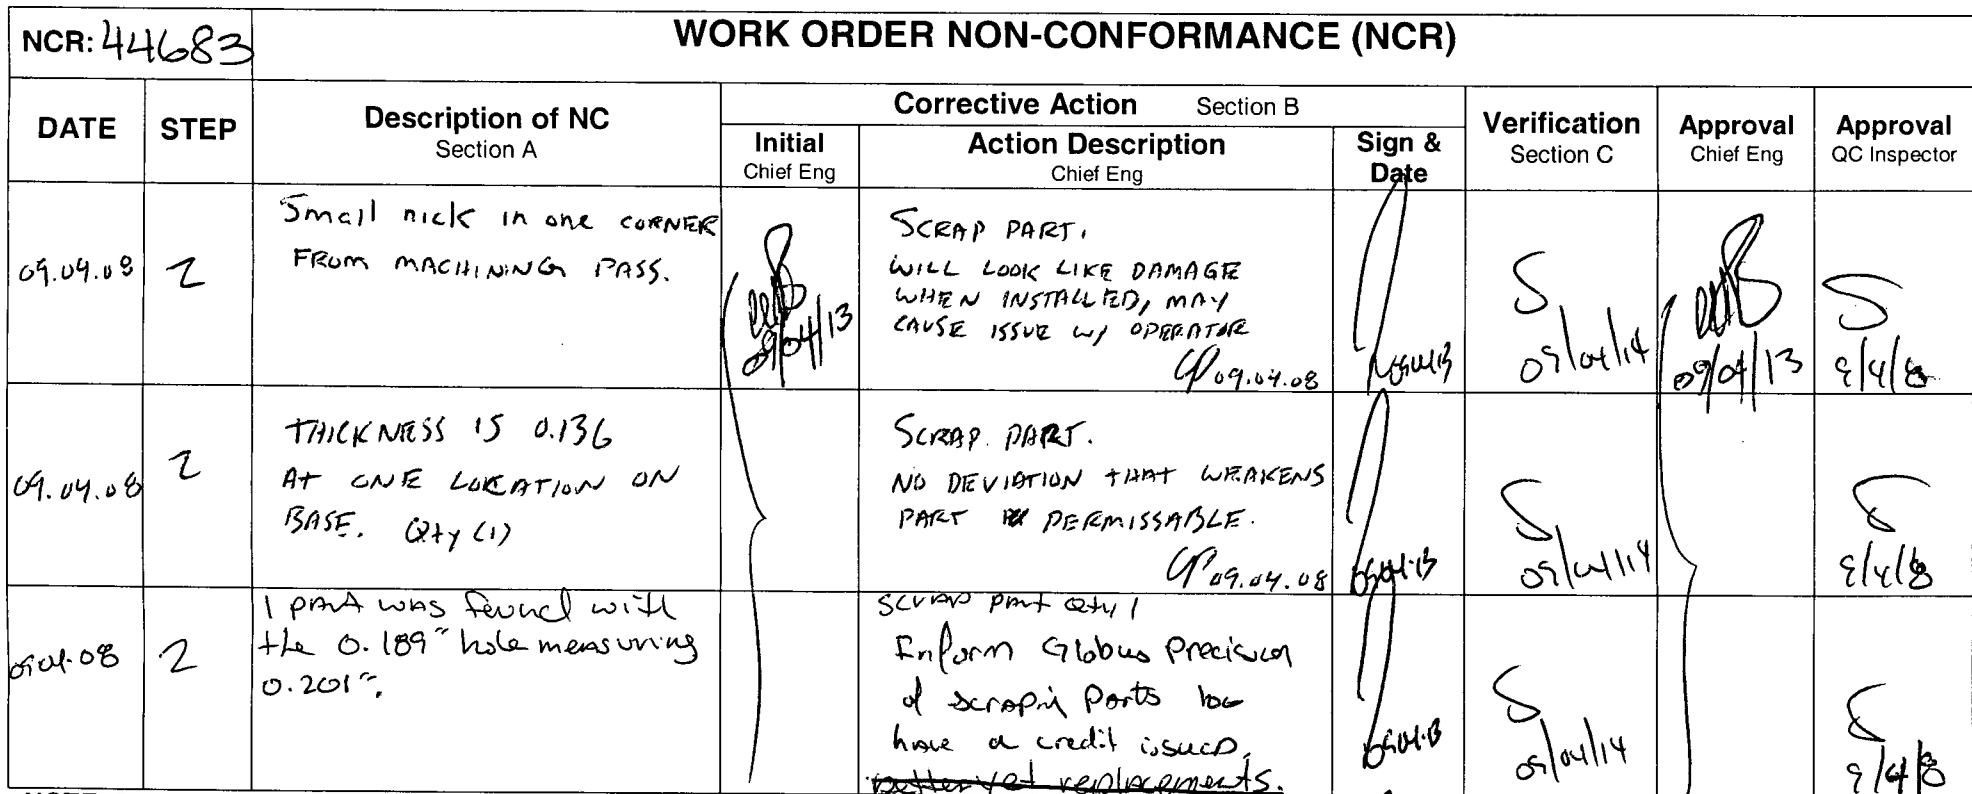 NCR: 44683
WORK ORDER NON-CONFORMANCE (NCR)
DATE
STEP
Description of NC
Section A
Corrective Action Section B
Initial
Chief Eng
Action Description
Chief Eng
Sign &
Date
Verification
Section C
Approval
Chief Eng
Approval
QC Inspector
09.04.08
2
Small nick in one CORNER
FROM MACHINING PASS.
09/04/13
SCRAP PART.
WILL LOOK LIKE DAMAGE
WHEN INSTALLED, MAY
CAUSE ISSUE W/ OPERATOR
09.04.08
09.04.13
S
09/04/14
09/04/13
S
9/4/8
09.04.08
2
THICKNESS IS 0.136
AT ONE LOCATION ON
BASE. Qty (1)
SCRAP PART.
NO DEVIATION THAT WEAKENS
PART PERMISSABLE.
09.04.08
09.04.13
S
09/04/14
S
9/4/8
09.04.08
2
1 part was found with
the 0.189" hole measuring
0.201".
scrap part Qty 1
Inform Globus Precision
of scrapin parts
have a credit issued.
better yet replacements.
09.04.13
S
09/04/14
S
9/4/8